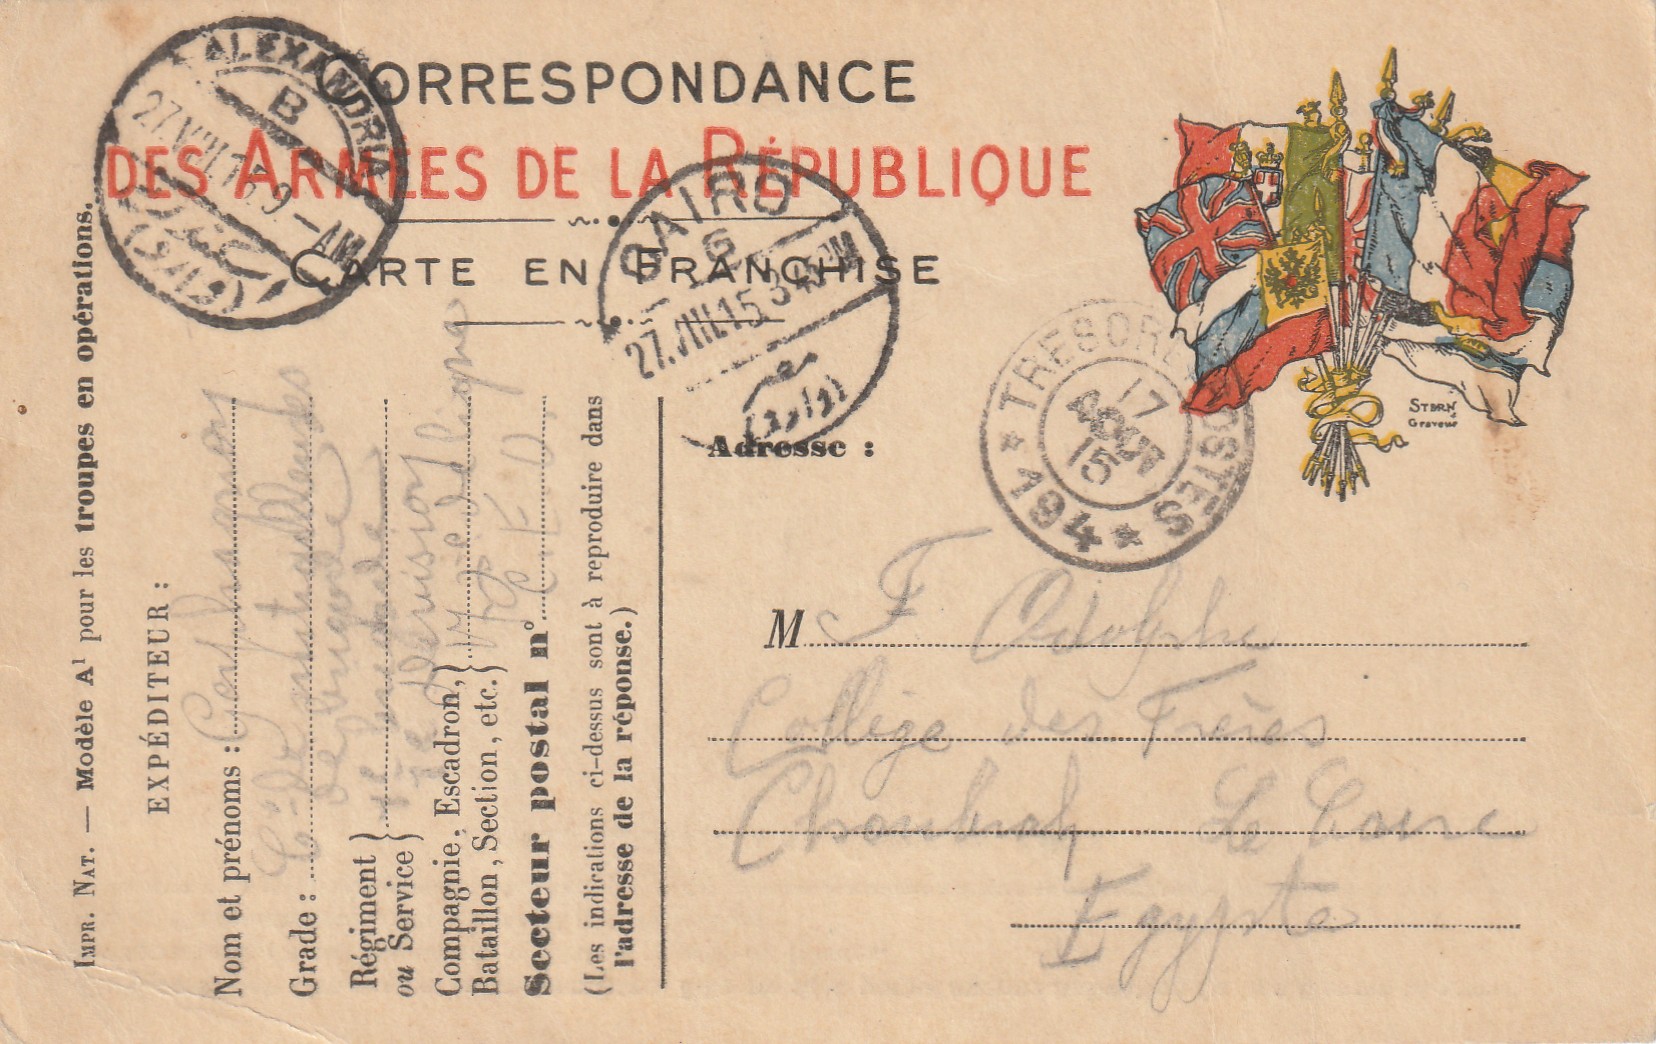 CORRESPONDANCE
DES ARMÉES DE LA RÉPUBLIQUE
CARTE EN FRANCHISE
ALEXANDRIA
B
27.VIII.15 9-AM
CAIRO
6
27.VIII.15 3
TRESOR ET POSTES
17
AOUT
15
* 194 *
STERN
Graveur
Adresse :
M F Adolphe
Collège des Frères
Choubrah Le Caire
Egypte
IMPR. NAT. — Modèle A1 pour les troupes en opérations.
EXPÉDITEUR :
Nom et prénoms :
Grade :
Régiment
ou Service
Compagnie, Escadron,
Bataillon, Section, etc.
Secteur postal n° C. E. O.
(Les indications ci-dessus sont à reproduire dans
l'adresse de la réponse.)